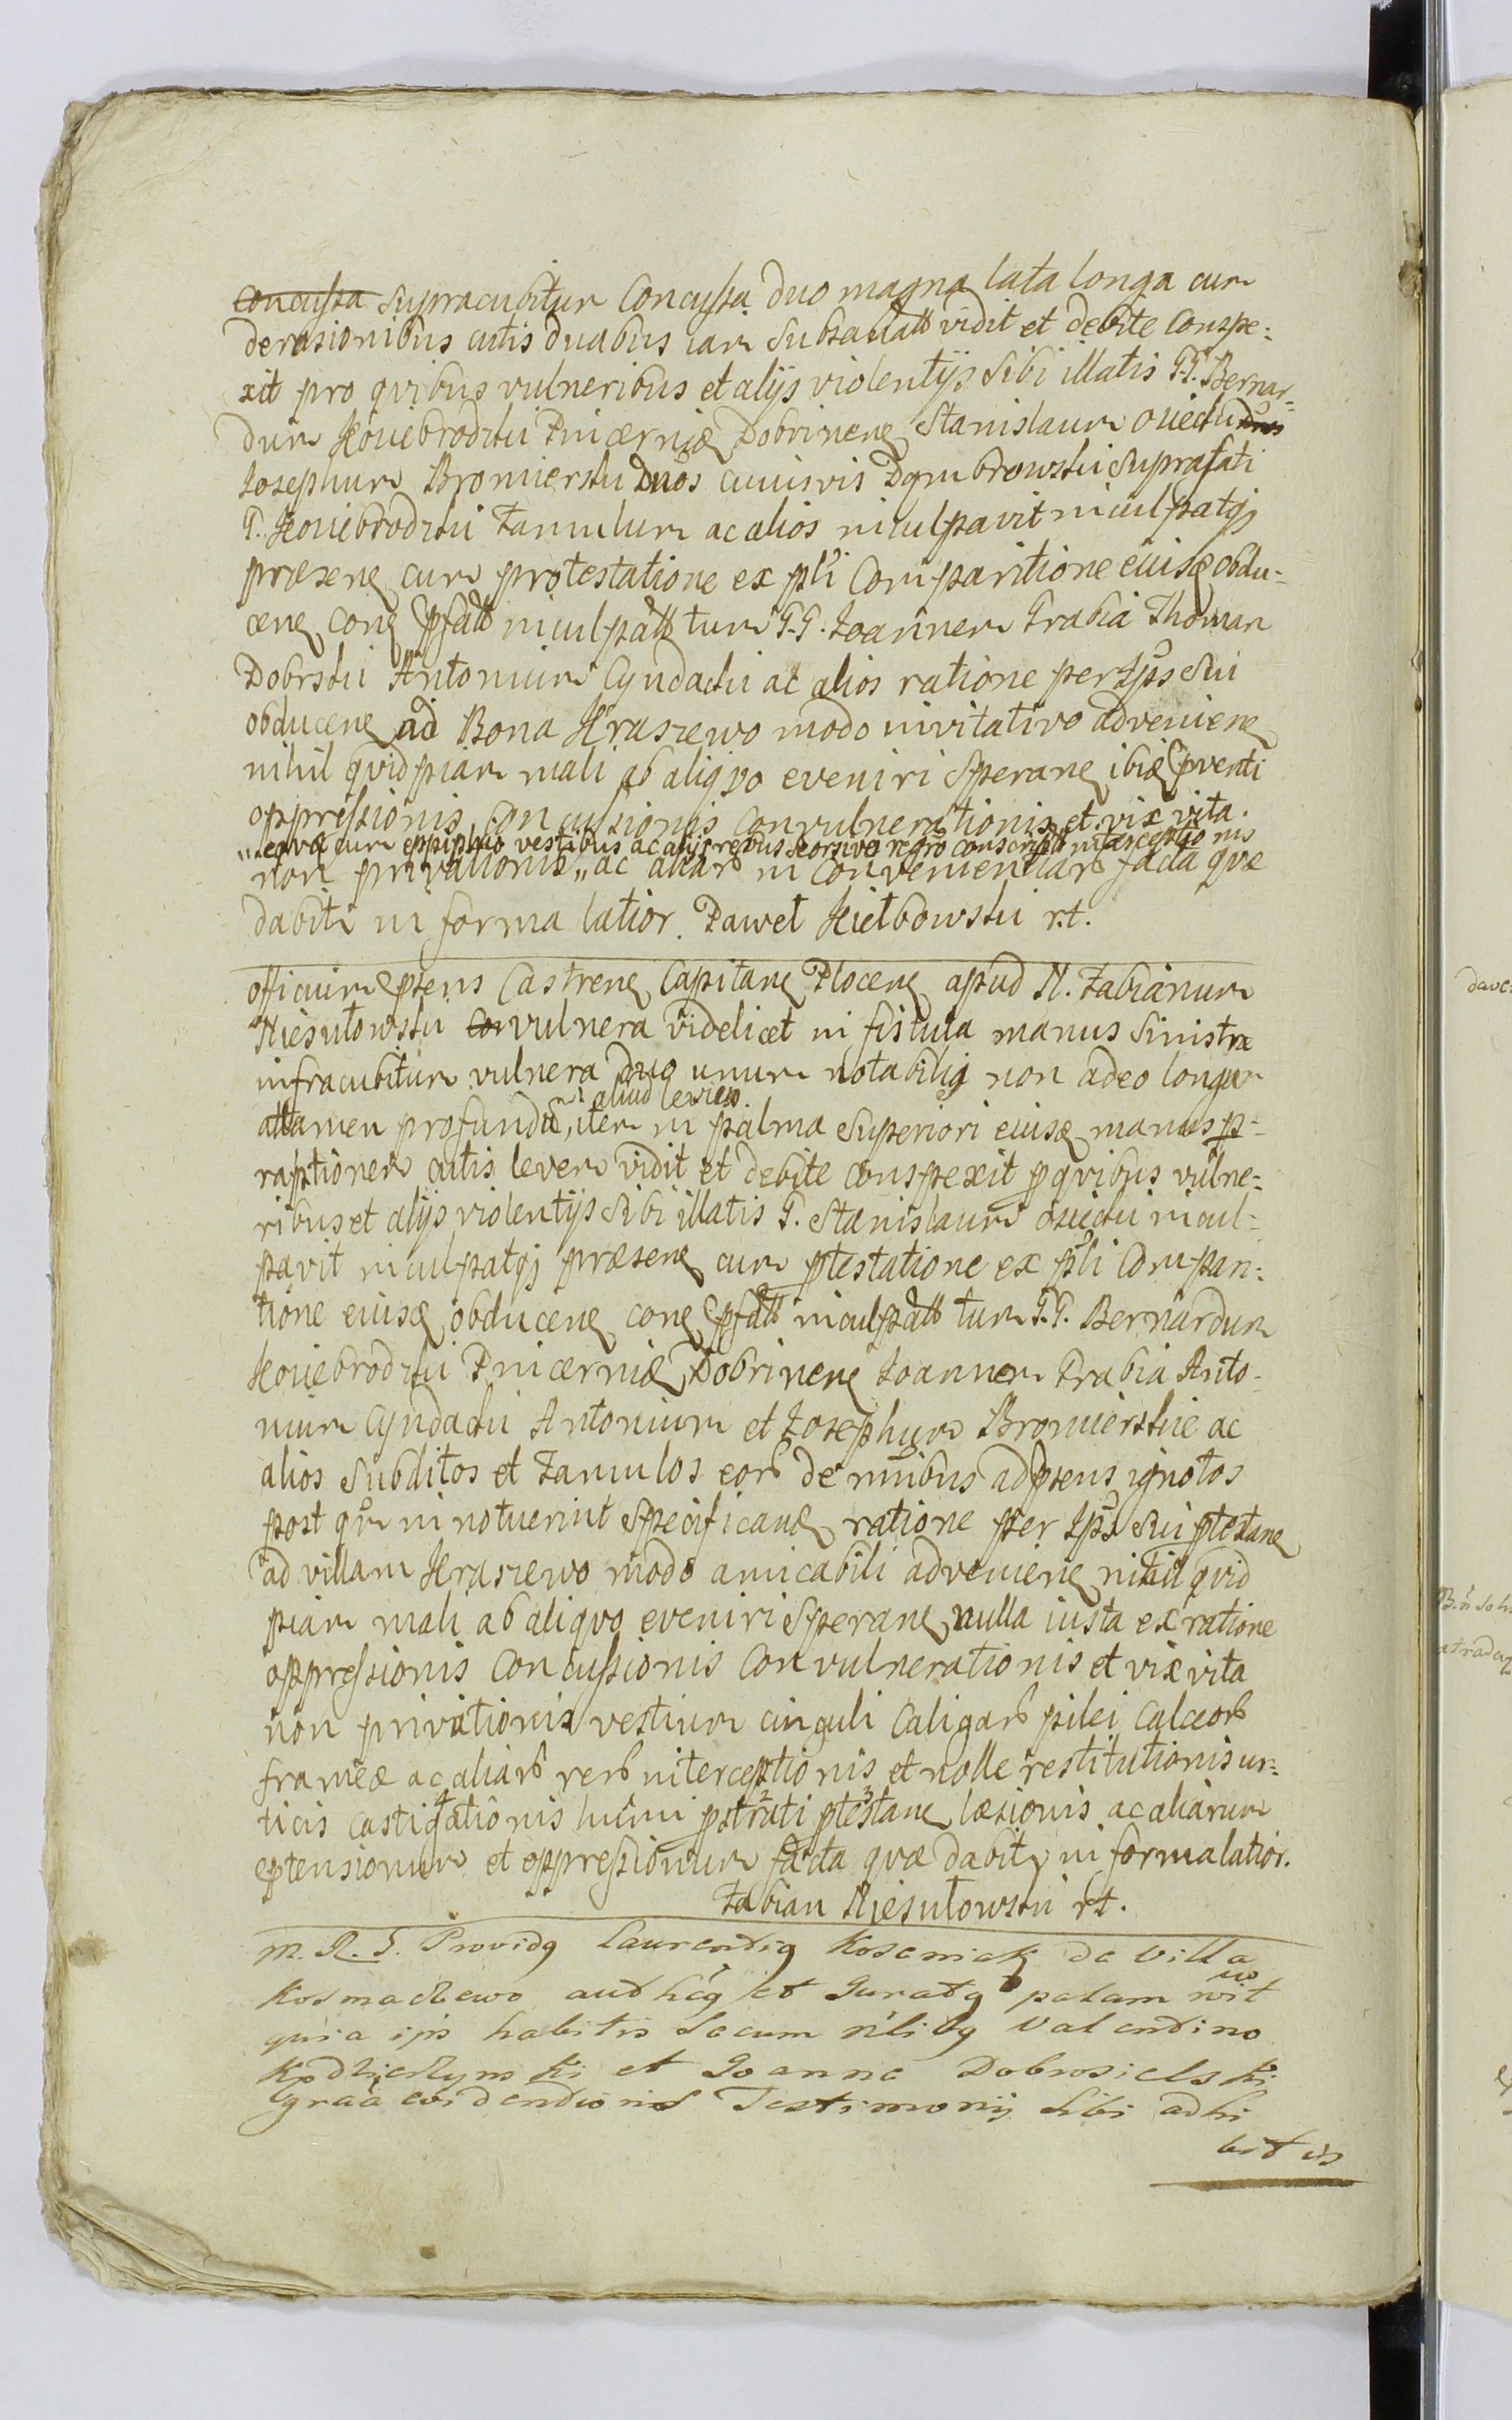 concussa supracubitum Concussa duo magna lata longa cum
derasionibus cutis duabus iam subsanatt vidit et debite conspe:
xit pro qvibus vulneribus et alijs violentijs sibi illatis G.G. Bernar=
dum Koniebrodzki Pincernidę Dobrinenę Stanislaum
Josephum Bromierski Duos cuiusvis Dąmbrowski suprafati
G. Koniebrodzki Famulum ac alios inculpavit inculpatqj
præsenę cum protestatione ex pti Comparitione eiusdę obdu-
cenę conę pfatt inculpatt tum G.G. Joannem Grabia Thomam
Dobrski Antonium Cyndacki ac alios ratione per Ips Sui
obducenę ad Bona Kraszewo modo invitativo advenienę
nihil qvidpiam mali ab aliqvo eveniri Speranę ibidę pventi
oppressionis concussionis convulnerationis et vix vita
„eqvæ cum ephippio vestibus ac alijs rebus seorsive regro conscript interceptionis
non privationis „ ac aliarb inconvenientiarb facta qvæ
dabitr in forma latior. Paweł Kiełbowski rt.
officium psens Castrenę Capitanę Plocenę apud N. Fabianum
Niesułowski con vulnera videlicet in fistula manus Sinistræ
infracubitum vulnera duo unum notabilig non adeo longum
nr aliud leviex
attamen profundu, item in palma Superiori eiusdę manus p=
raptionem cutis levem vidit et debite conspexit p qvibus vulne:
ribus et alijs violentijs Sibi illatis G. Stanislaum incul=
pavit inculpatqj præsenę cum ptestatione ex pti Compari:
tione eiusdę obducenę conę pfatt inculpatt tum G.G. Bernardum
Koniebrodzki Pincernidę Dobrinenę Joannem Grabia Anto-
nium Cyndacki Antonium et Josephum Bromierskie ac
alios Subditos et Famulos eorb de nnibus ad psens ignotos
post qm innotuerint Specificandę ratione per Ips Sui ptestanę
ad villam Kraszewo modo amicabili advenienę nihil qvid
piam mali ab aliqvo eveniri Speranę nulla iusta ex ratione
oppressionis Concussionis Convulnerationis et vix vita
non privationis vestium cinguli Caligarb pilei Calceorb
frameæ ac aliarb rerb interceptionis et nolle restitutionis us:
ticis castigationis humi pstrati ptestanę læsionis ac aliarum
eptensionum et oppressionum facta qvæ dabitr in forma latior.
Fabian Niesułowski rt.
M. R. G. Providg Laurentig de Villa
Kosmaczewo auth et Juratg palam rwit
quia ips habitis Secum nlibg Valentino
et Joanne Dobrosielski
graa evidentioris Testimonij Sibi adhi
bitis